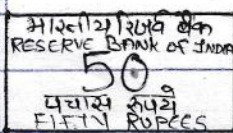 भारतीय रिजर्व बैंक
RESERVE BANK OF INDIA
50
पचास रुपये
FIFTY RUPEES